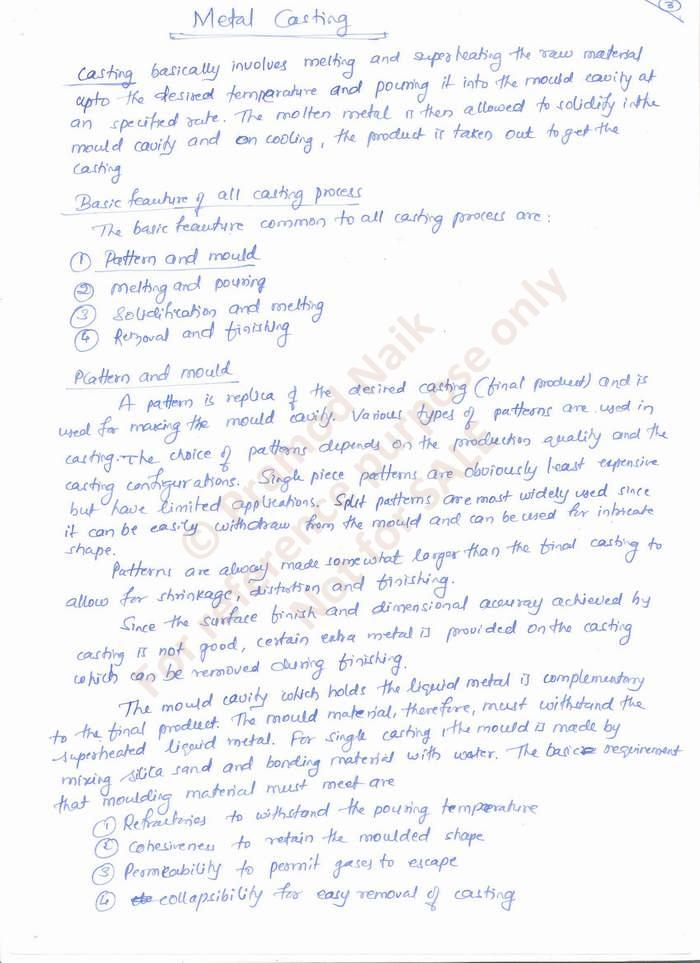 3
Metal Casting
Casting basically involves melting and superheating the raw material
upto the desired temperature and pouring it into the mould cavity at
an specified rate. The molten metal is then allowed to solidify in the
mould cavity and on cooling, the product is taken out to get the
casting
Basic feauture of all casting process
The basic feauture common to all casting process are:
① Pattern and mould
② Melting and pouring
③ Solidification and melting
④ Removal and finishing
Pattern and mould
A pattern is replica of the desired casting (final product) and is
used for making the mould cavity. Various types of patterns are used in
casting. The choice of patterns depends on the production quality and the
casting configurations. Single piece patterns are obviously least expensive
but have limited applications. Split patterns are most widely used since
it can be easily withdraw from the mould and can be used for intricate
shape.
Patterns are alway made somewhat larger than the final casting to
allow for shrinkage, distortion and finishing.
Since the surface finish and dimensional accuray achieved by
casting is not good, certain extra metal is provided on the casting
which can be removed during finishing.
The mould cavity which holds the liquid metal is complementary
to the final product. The mould material, therefore, must withstand the
superheated liquid metal. For single casting, the mould is made by
mixing silica sand and bonding material with water. The basic requirement
that moulding material must meet are
① Refractories to withstand the pouring temperature
② Cohesiveness to retain the moulded shape
③ Permeability to permit gases to escape
④ collapsibility for easy removal of casting
© Pramod Naik
For reference purpose only
Not for SALE